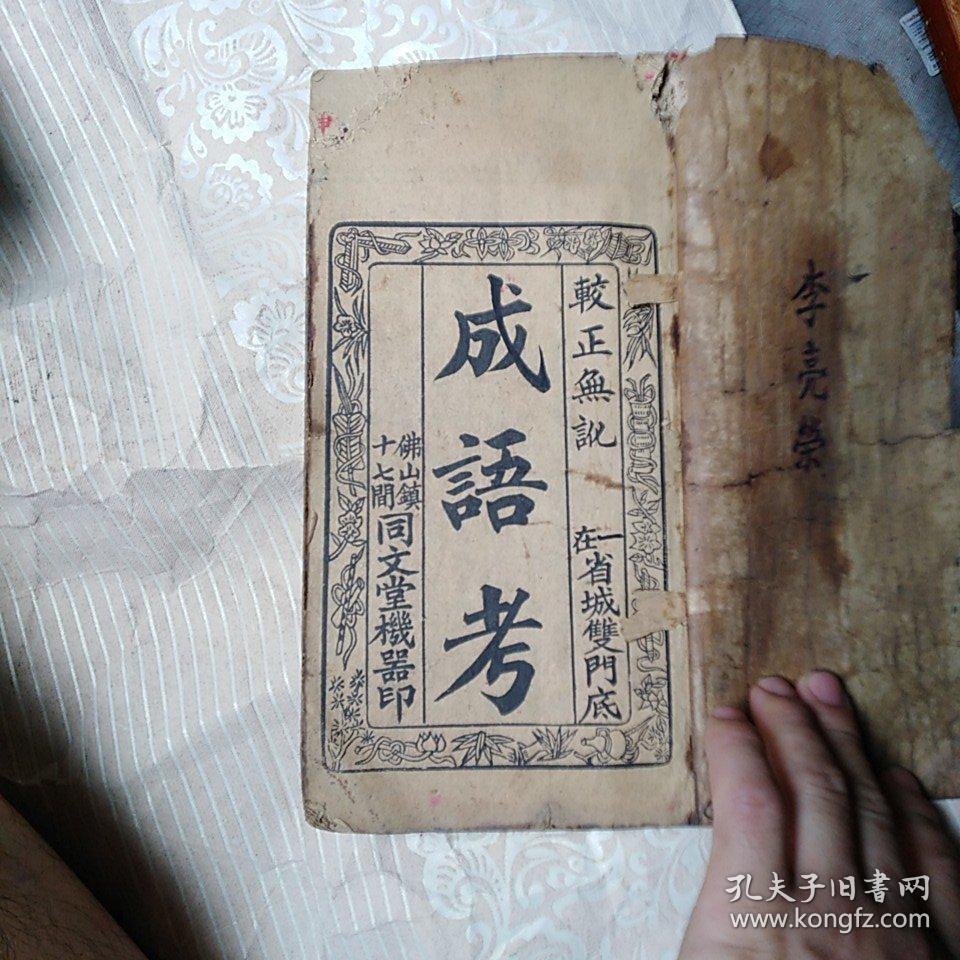 李亮榮
較正無訛
一在省城雙門底
成語考
佛山鎮
十七間
同文堂機器印
孔夫子旧书网
www.kongfz.com